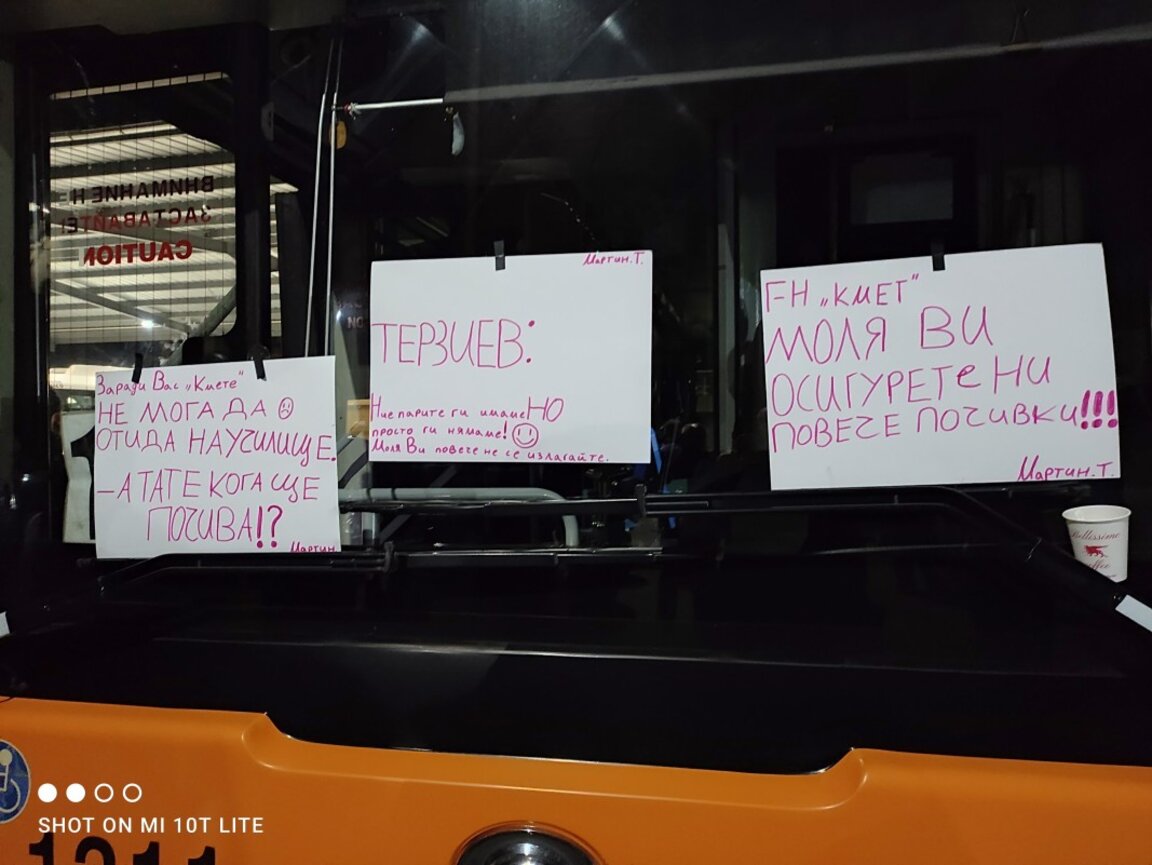 ВНИМАНИЕ Н
ЗАСТАВАЙТЕ
CAUTION
Заради Вас „Кмете"
НЕ МОГА ДА ☹
ОТИДА НА УЧИЛИЩЕ.
– А ТАТЕ КОГА ЩЕ
ПОЧИВА!?
Мартин
Мартин.Т.
ТЕРЗИЕВ:
Ние парите ги имаме НО
просто ги нямаме! ☺
Моля Ви повече не се излагайте.
ГН „КМЕТ"
МОЛЯ ВИ
ОСИГУРЕТЕ НИ
ПОВЕЧЕ ПОЧИВКИ!!!
Мартин.Т.
Bellissimo
coffee
SHOT ON MI 10T LITE